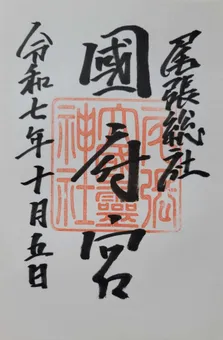 尾張総社
國府宮
令和七年十月五日
尾張大國霊神社